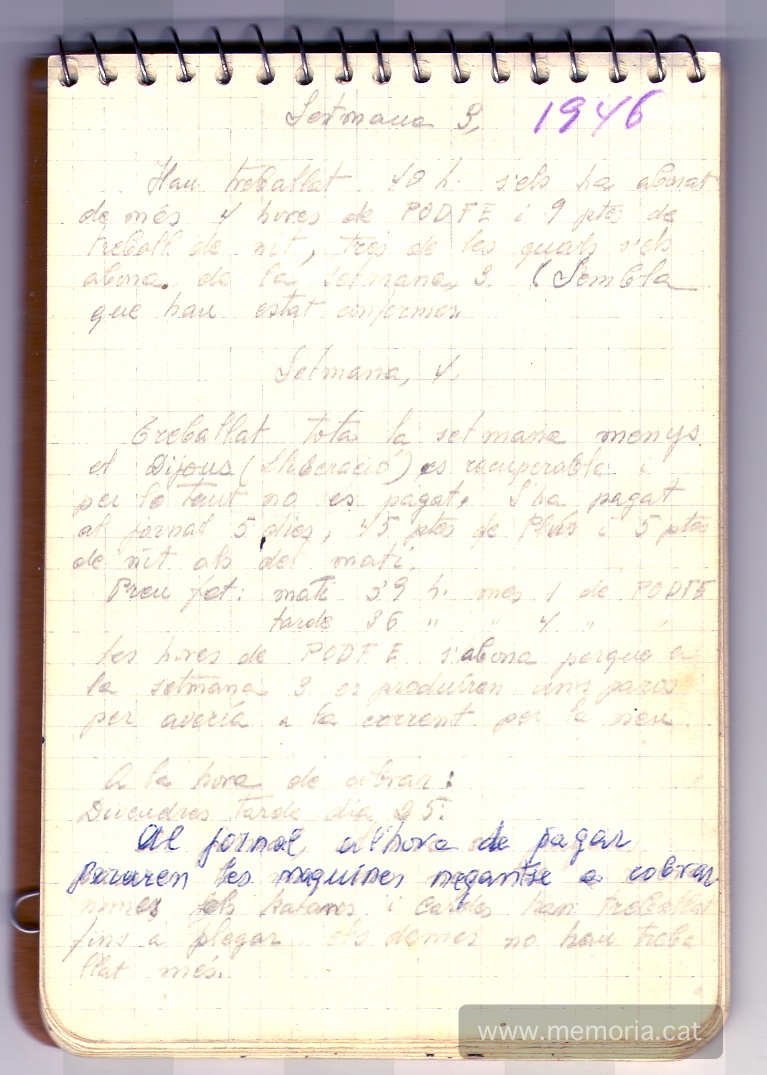 Setmana 3, 1946
Han treballat 40 h. s'els ha abonat
de més 4 hores de PODFE i 9 ptes de
treball de nit, tres de les quals s'els
abona de la setmana 3. (Sembla
que han estat conformes
Setmana, 4.
Treballat tota la setmana menys
el Dijous (Lliberació) es recuperable i
per lo tant no es pagat. S'ha pagat
al jornal 5 dies, 45 ptes de Plus i 5 ptes
de nit als del matí.
Preu fet: mati 39 h. mes 1 de PODFE
tarde 36 " " 4 " "
Les hores de PODFE s'abona perque a
la setmana 3 es produiren uns paros
per avería a la corrent per la neu.
A la hora de cobrar:
Divendres tarde dia 25:
Al jornal, a l'hora de pagar
pararen les maquines negantse a cobrar
només els i han treballat
fins a plegar els demes no han treba
llat més.
www.memoria.cat